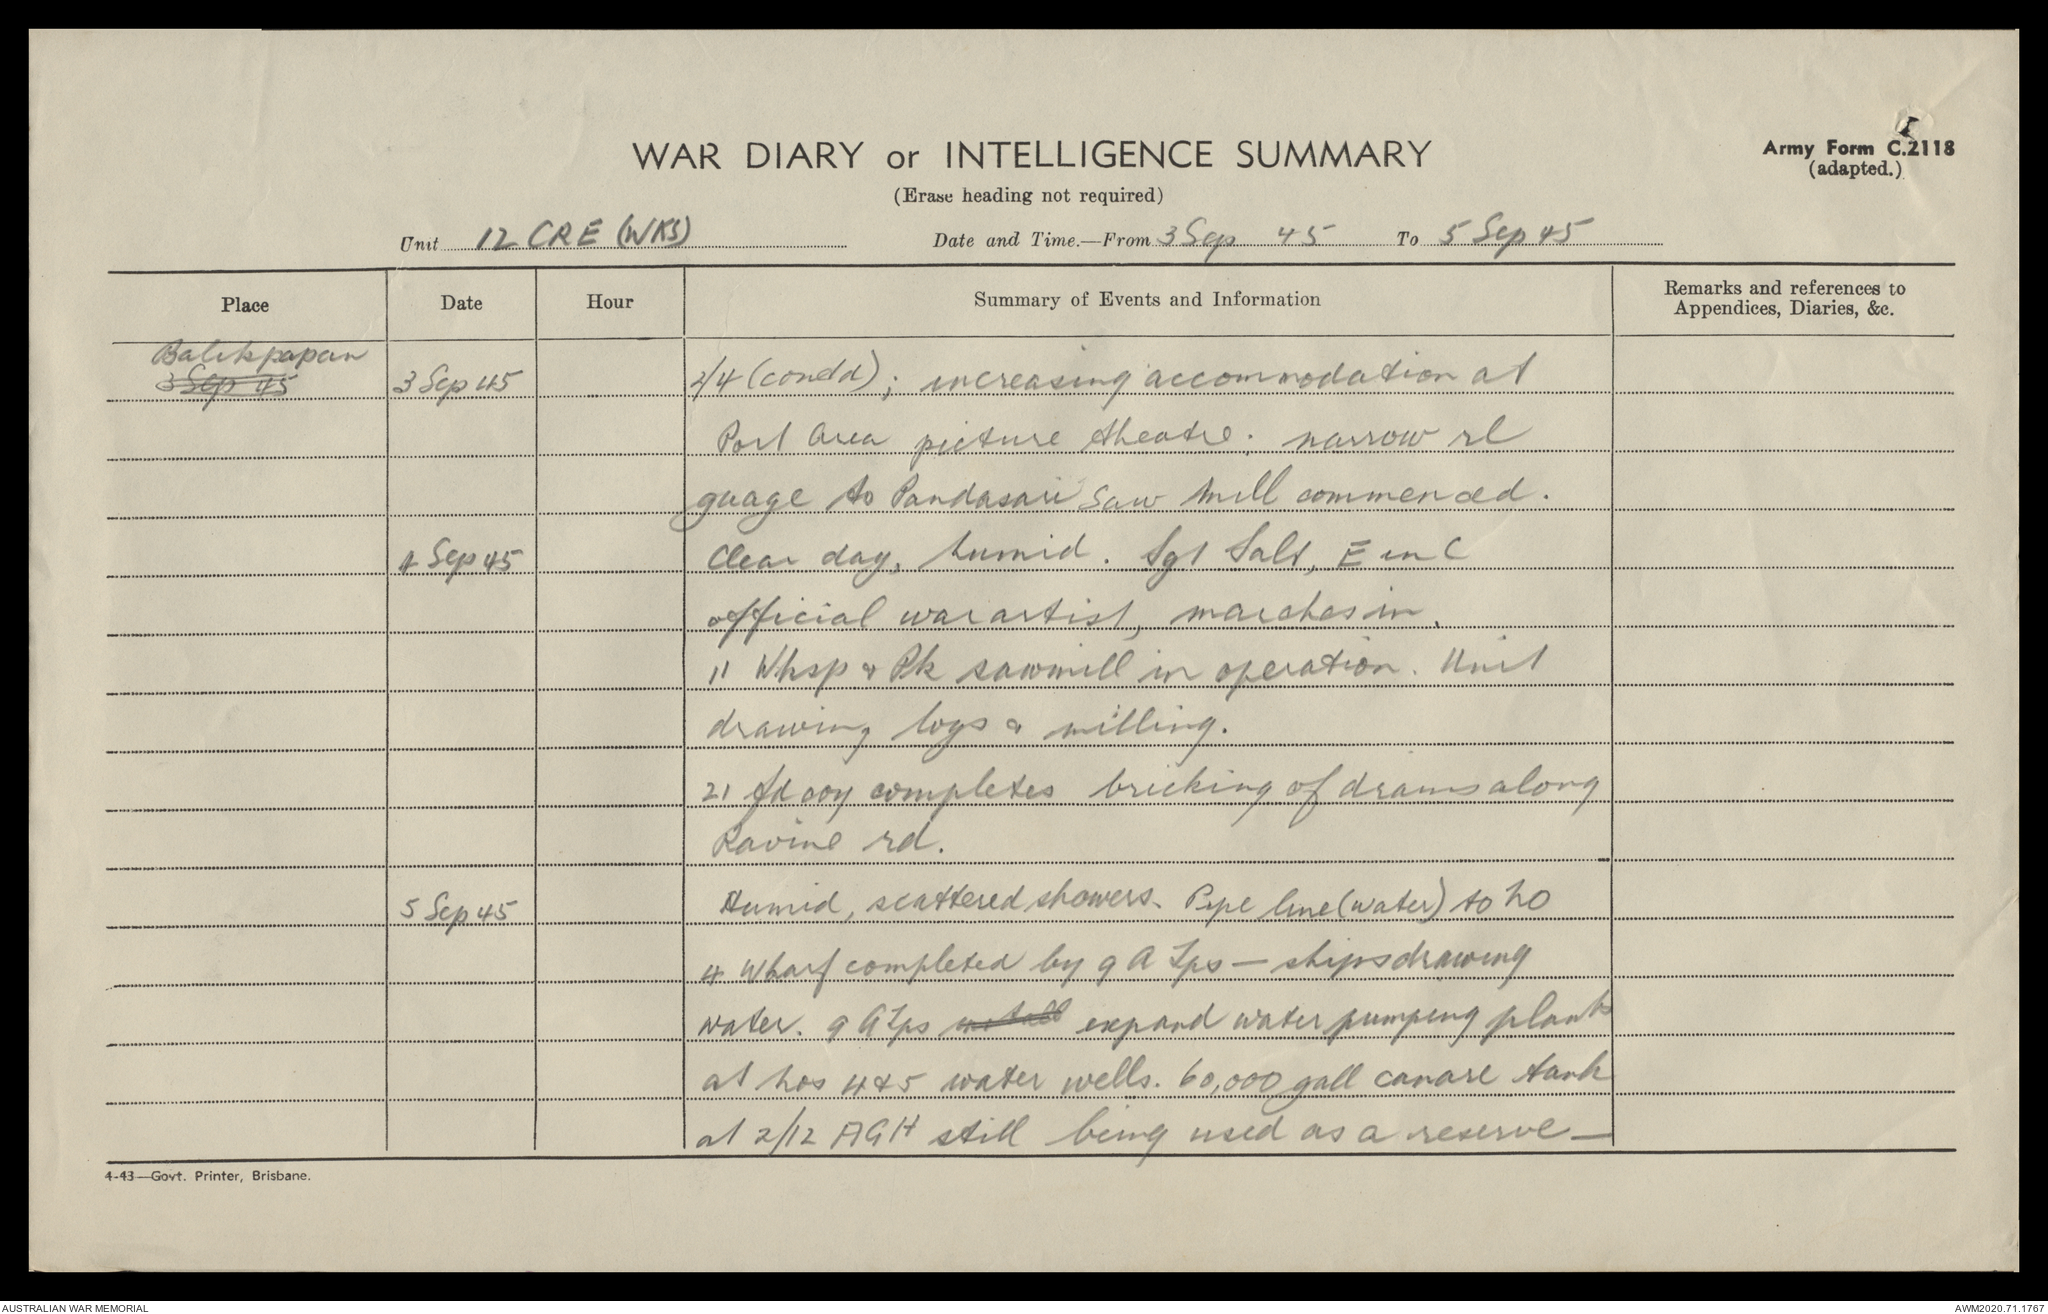 WAR DIARY or INTELLIGENCE SUMMARY
(Erase heading not required)
Army Form C.2118
(adapted.)
Unit 12 CRE (WKS) Date and Time.—From 3 Sep 45 To 5 Sep 45
Place Date Hour Summary of Events and Information Remarks and references to
Appendices, Diaries, &c.
Balikpapan
3 Sep 45 3 Sep 45 2/4 (contd); increasing accommodation at
Port Area picture theatre; narrow rl
guage to Pandasari Saw Mill commenced.
4 Sep 45 Clear day, humid. Sgt Salt, E in C
official war artist, marches in.
11 Wksp & Pk sawmill in operation. Unit
drawing logs & milling.
21 fd coy completes bricking of drains along
Ravine rd.
5 Sep 45 Humid, scattered showers. Pipe line (water) to No
4 Wharf completed by 9 A Tps — ships drawing
water. 9 A Tps install expand water pumping plants
at Nos 4 & 5 water wells. 60,000 gall canare tank
at 2/12 AGH still being used as a reserve —
4-43—Govt. Printer, Brisbane.
AUSTRALIAN WAR MEMORIAL
AWM2020.71.1767